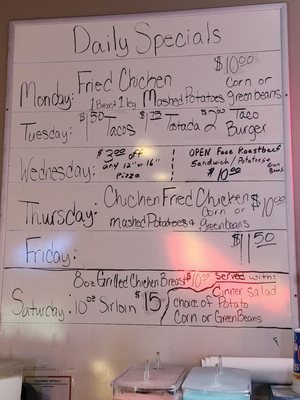 Daily Specials
Monday: Fried Chicken $10.00
1 Breast 1 leg Mashed Potatoes Corn or green beans
Tuesday: $1.50 Tacos $1.75 Tostada $2.00 Taco Burger
Wednesday: $3.00 off any 12" or 16" Pizza
OPEN Face Roastbeef
Sandwich / Potatoes &
Green Beans
$10.00
Thursday: Chicken Fried Chicken $10.00
Mashed Potatoes & Corn or green Beans
Friday: $11.50
8oz Grilled Chicken Breast $10.00 Served with:
Saturday: 10oz Sirloin $15 Dinner Salad
choice of Potato
Corn or Green Beans